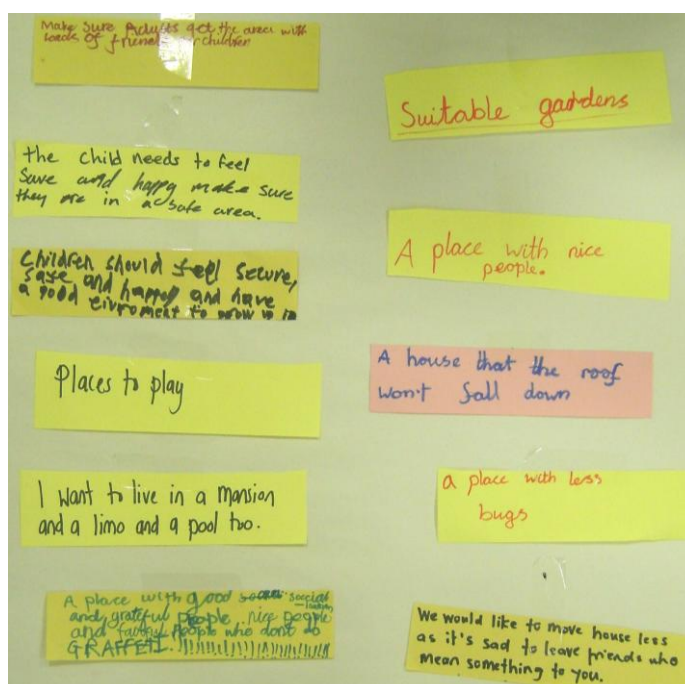 Make Sure Adults get the area with
loads of friends for children
the child needs to feel
save and happy make sure
they are in a safe area.
Children should feel secure,
safe and happy and have
a good eivroment to grow up in
Places to play
I want to live in a mansion
and a limo and a pool too.
A place with good social
and grateful people, nice people
and people who dont do
GRAFFETI.
Suitable gardens
A place with nice
people.
A house that the roof
won't fall down
a place with less
bugs
We would like to move house less
as it's sad to leave friends who
mean something to you.